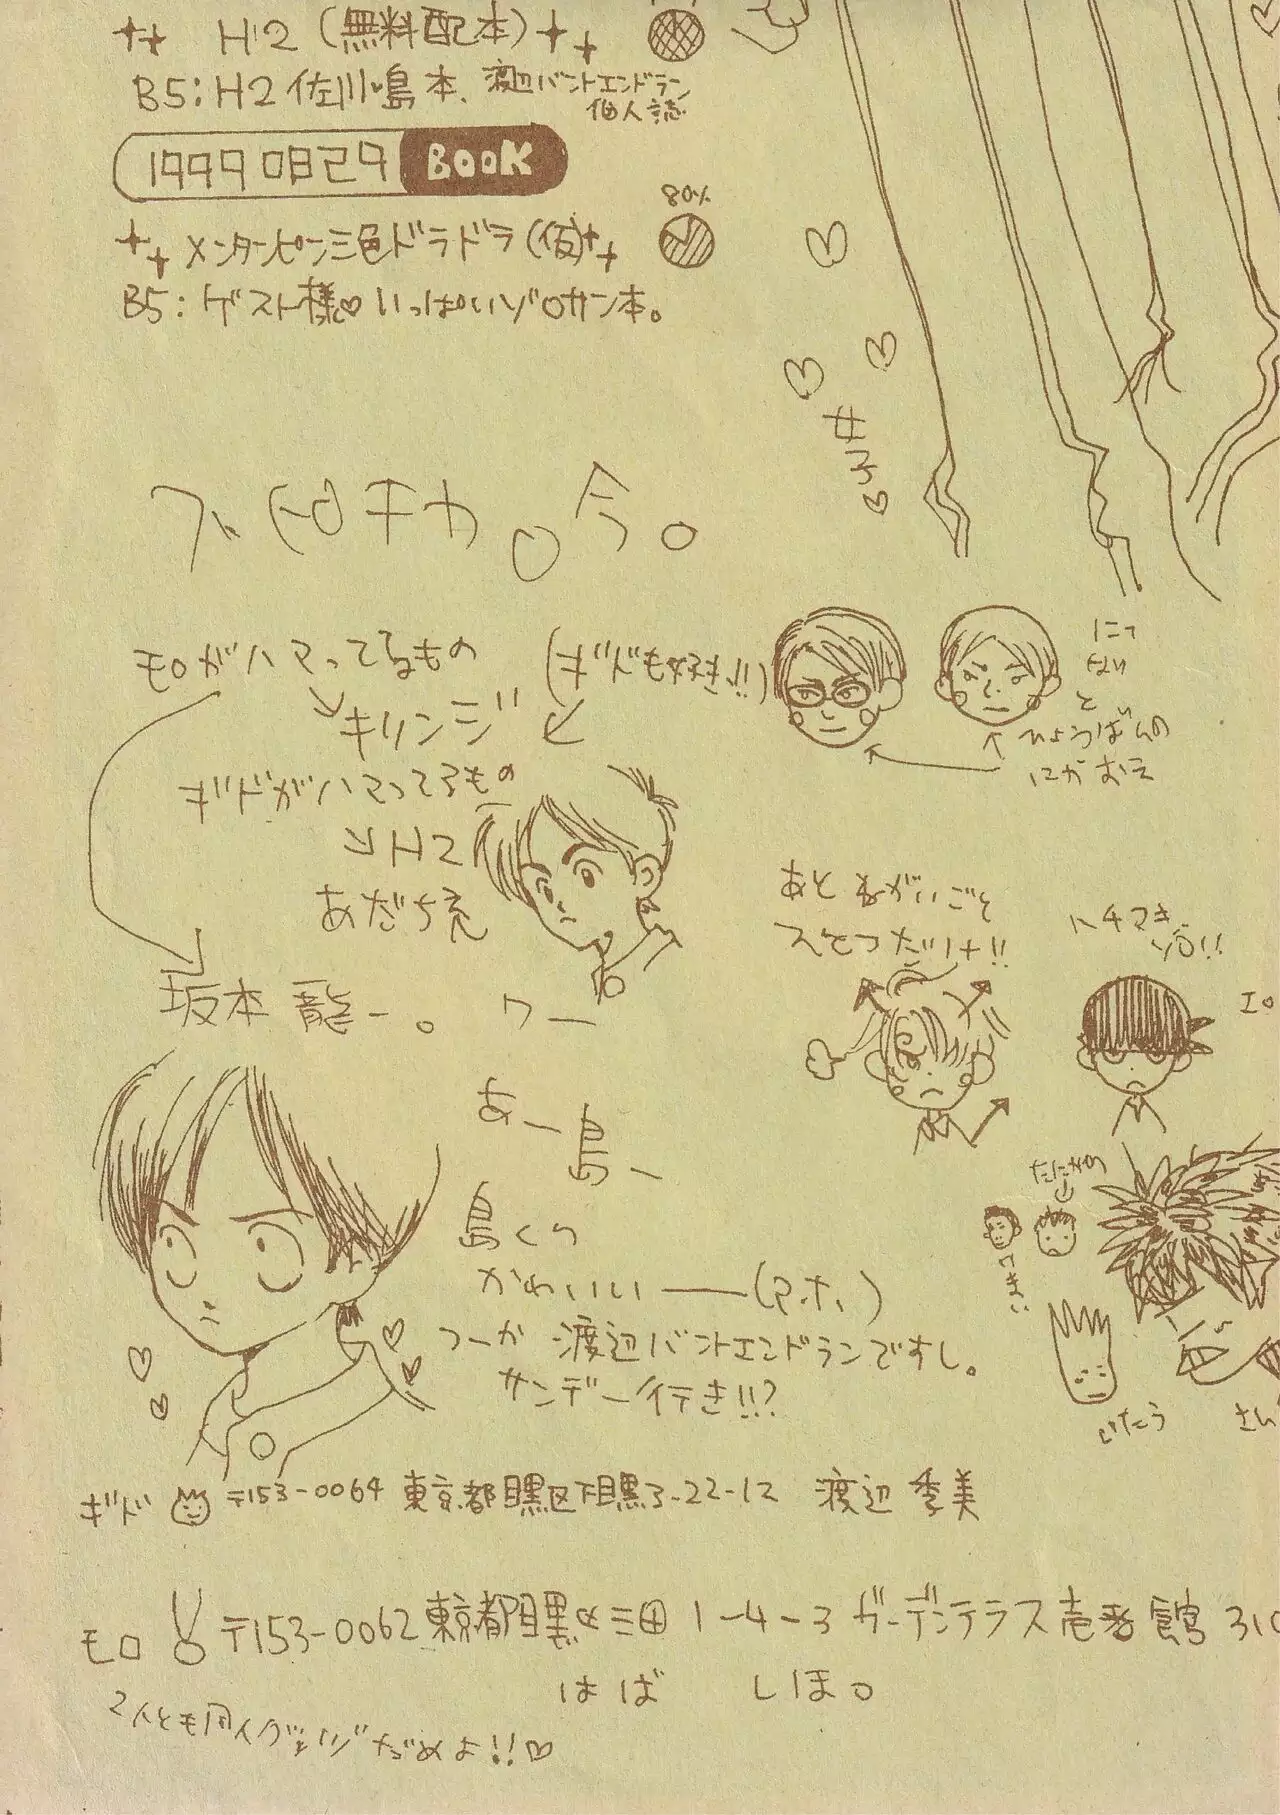 H2(無料配本)
B5:H2佐川・島本、渡辺バントエンドラン
個人誌
19990829 BOOK
80%
メンタンピン三色ドラドラ(仮)
B5:ゲスト様♡いっぱいゾロサン本。
女子♡
今。
モロがハマってるもの
(ギドも好き!!)
キリンジ
ギドがハマってるもの
H2
あだち充
坂本龍一。
にてない
と
ひょうばんの
にがおえ
あとねがいごと
ひとつだけ!!
ハチマキ
ゾロ!!
あー島ー
島くん
かわいいー(アホ)
つーか渡辺バントエンドランですし。
サンデー行き!!?
ギド 〒153-0064 東京都目黒区下目黒3-22-12 渡辺季美
モロ 〒153-0062 東京都目黒区三田1-4-3 ガーデンテラス壱番館310
はば しほ。